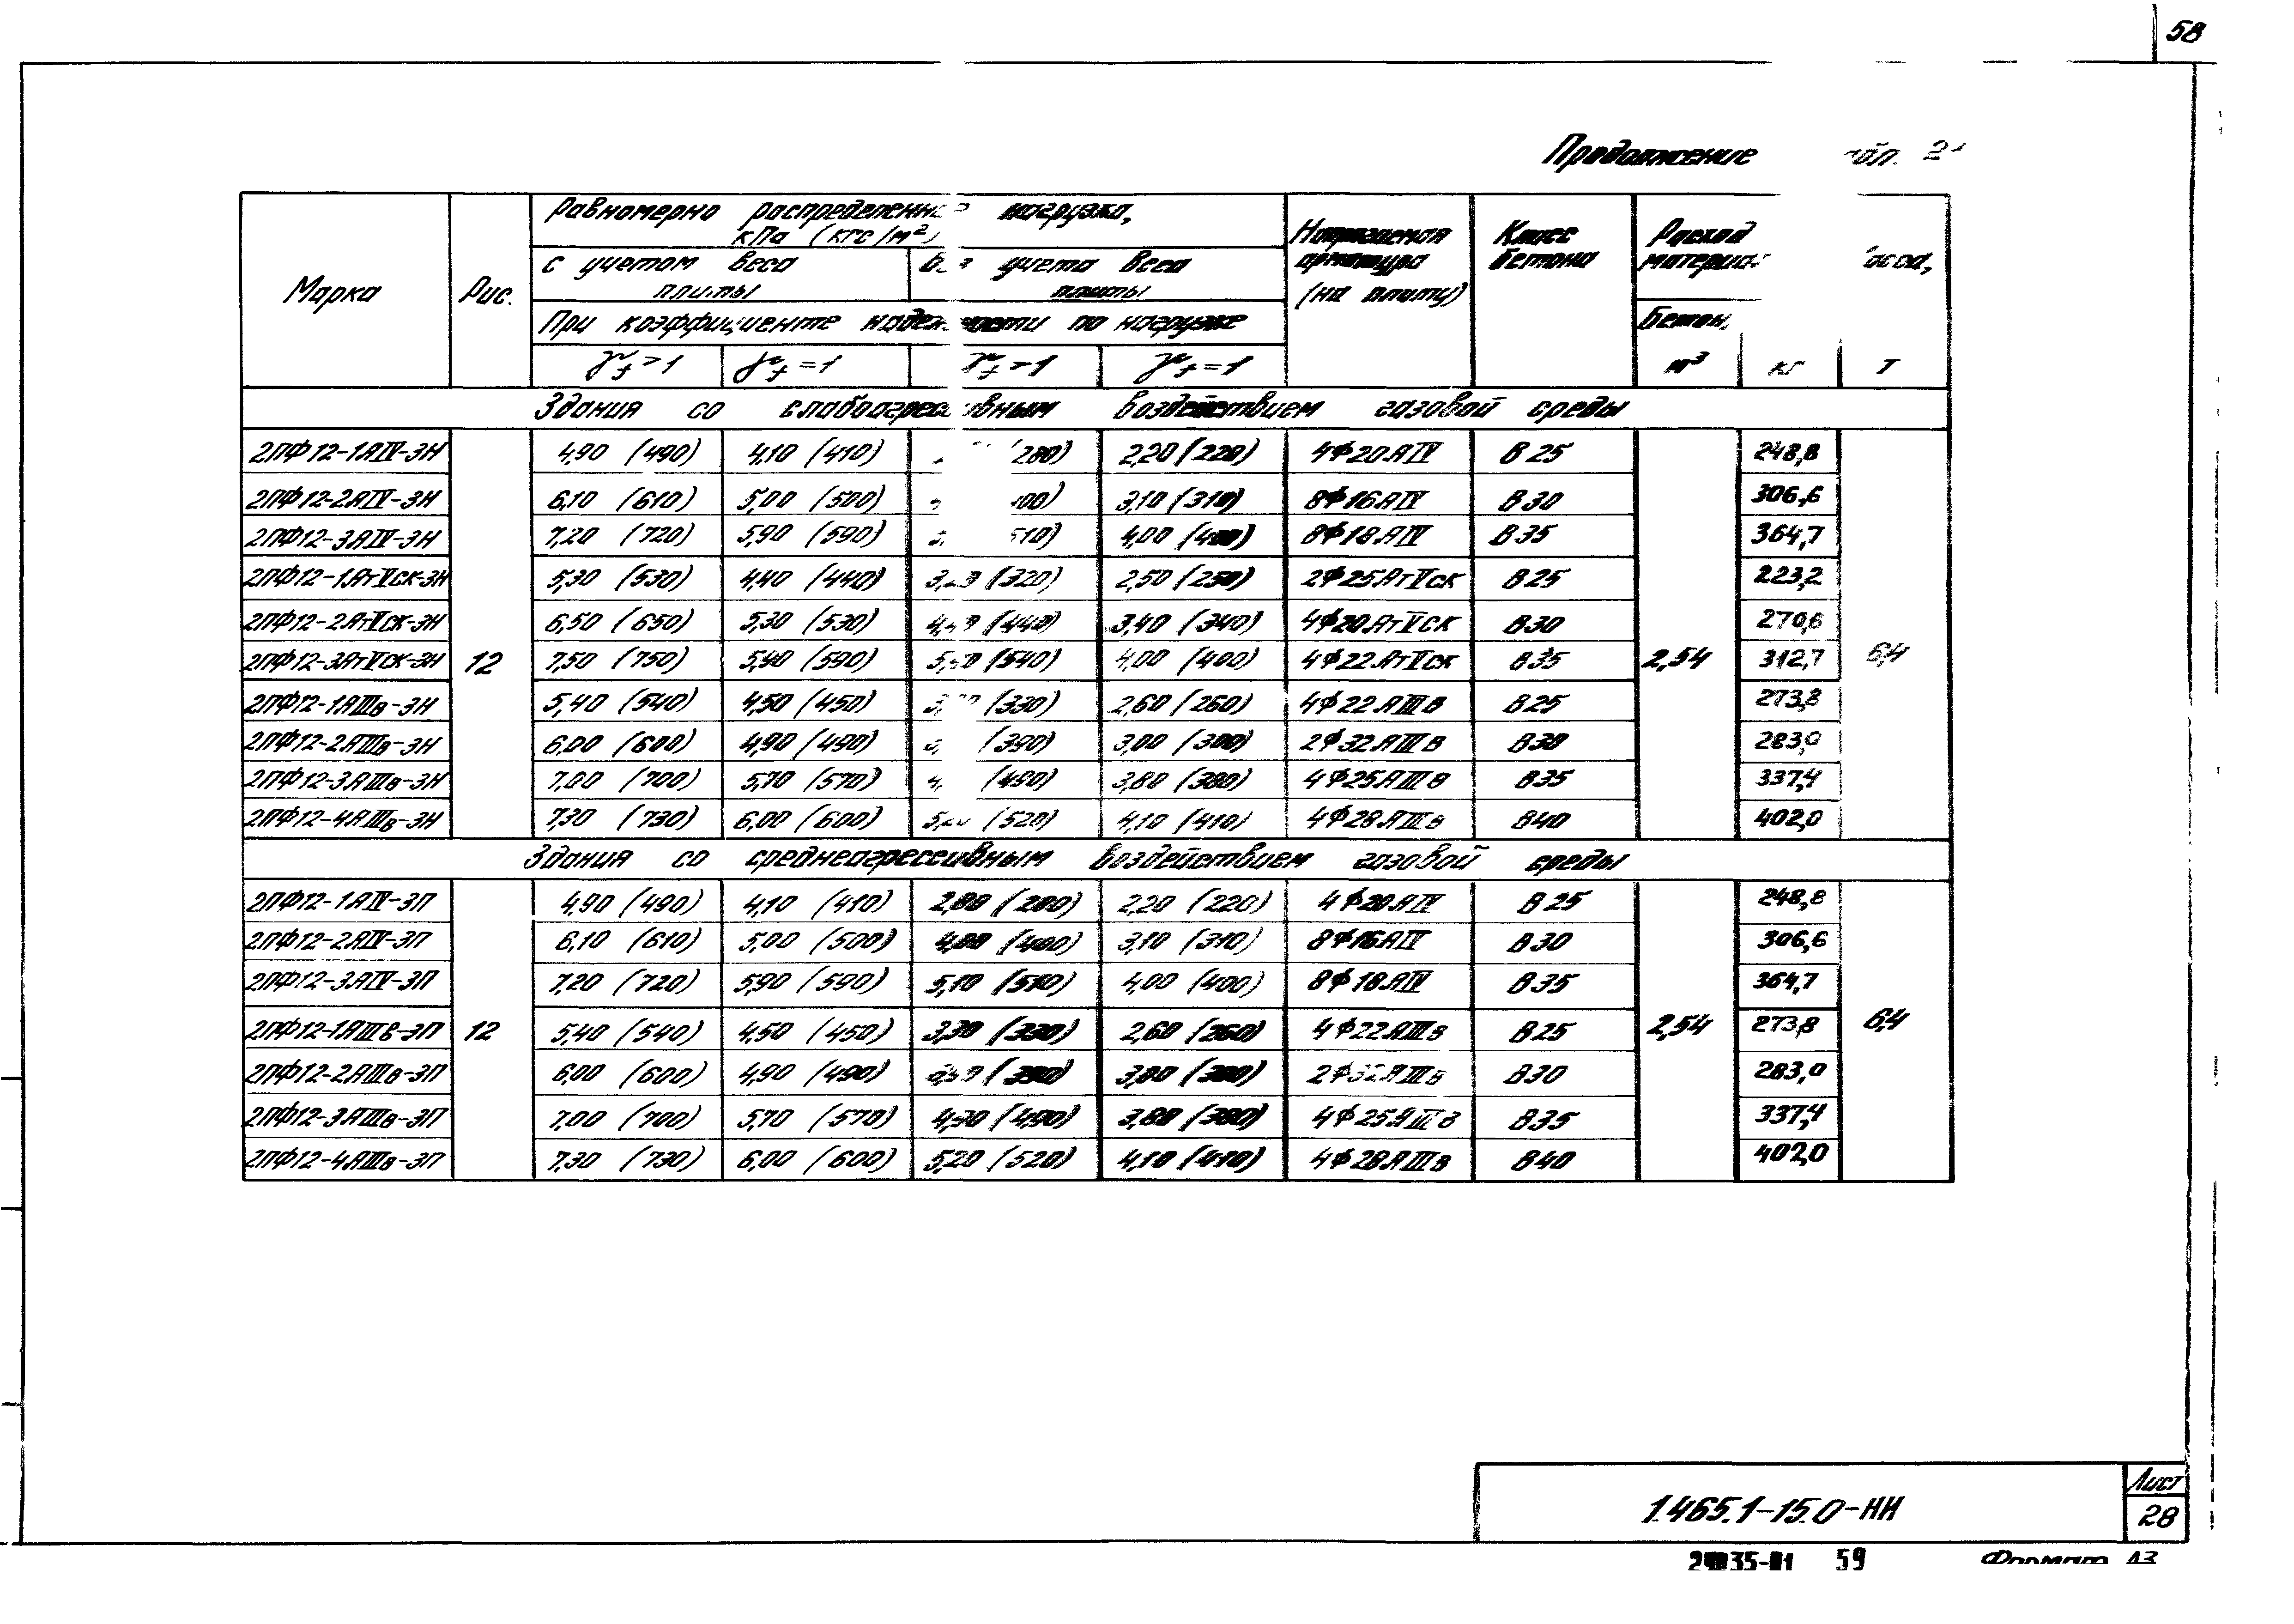 58
Продолжение
Марка Рис. Равномерно распределенная нагрузка, кПа (кгс/м²) Напрягаемая арматура (на плиту) Класс бетона Расход
с учетом веса плиты учета веса плиты
При коэффициенте по нагрузке Бетон,
γf >1 γf =1 γf >1 γf =1 м³ кг т
Здания со слабоагрессивным воздействием газовой среды
2ПФ12-1АIV-3Н 4,90 (490) 4,10 (410) 2,20 (220) 4Ф20АIV В25 248,8
2ПФ12-2АIV-3Н 6,10 (610) 5,00 (500) 3,10 (310) 8Ф16АIV В30 306,6
2ПФ12-3АIV-3Н 7,20 (720) 5,90 (590) 4,00 (400) 8Ф18АIV В35 364,7
2ПФ12-1АтVСК-3Н 5,30 (530) 4,40 (440) (320) 2,50 (250) 2Ф25АтVСК В25 223,2
2ПФ12-2АтVСК-3Н 6,50 (650) 5,30 (530) (440) 3,40 (340) 4Ф20АтVСК В30 270,6
2ПФ12-3АтVСК-3Н 12 7,50 (750) 5,90 (590) (540) 4,00 (400) 4Ф22АтVСК В35 2,54 312,7 6,4
2ПФ12-1АIIIв-3Н 5,40 (540) 4,50 (450) (330) 2,60 (260) 4Ф22АIIIв В25 273,8
2ПФ12-2АIIIв-3Н 6,00 (600) 4,90 (490) (390) 3,00 (300) 2Ф32АIIIв В30 283,0
2ПФ12-3АIIIв-3Н 7,00 (700) 5,70 (570) (490) 3,80 (380) 4Ф25АIIIв В35 337,4
2ПФ12-4АIIIв-3Н 7,30 (730) 6,00 (600) (520) 4,10 (410) 4Ф28АIIIв В40 402,0
Здания со среднеагрессивным воздействием газовой среды
2ПФ12-1АIV-3П 4,90 (490) 4,10 (410) 2,80 (280) 2,20 (220) 4Ф20АIV В25 248,8
2ПФ12-2АIV-3П 6,10 (610) 5,00 (500) 4,00 (400) 3,10 (310) 8Ф16АIV В30 306,6
2ПФ12-3АIV-3П 7,20 (720) 5,90 (590) 5,10 (510) 4,00 (400) 8Ф18АIV В35 364,7
2ПФ12-1АIIIв-3П 12 5,40 (540) 4,50 (450) 3,30 (330) 2,60 (260) 4Ф22АIIIв В25 2,54 273,8 6,4
2ПФ12-2АIIIв-3П 6,00 (600) 4,90 (490) 3,90 (390) 3,00 (300) 2Ф32АIIIв В30 283,0
2ПФ12-3АIIIв-3П 7,00 (700) 5,70 (570) 4,90 (490) 3,80 (380) 4Ф25АIIIв В35 337,4
2ПФ12-4АIIIв-3П 7,30 (730) 6,00 (600) 5,20 (520) 4,10 (410) 4Ф28АIIIв В40 402,0
1.465.1-15.0-НИ
Лист
28
24035-01 59 Формат А3